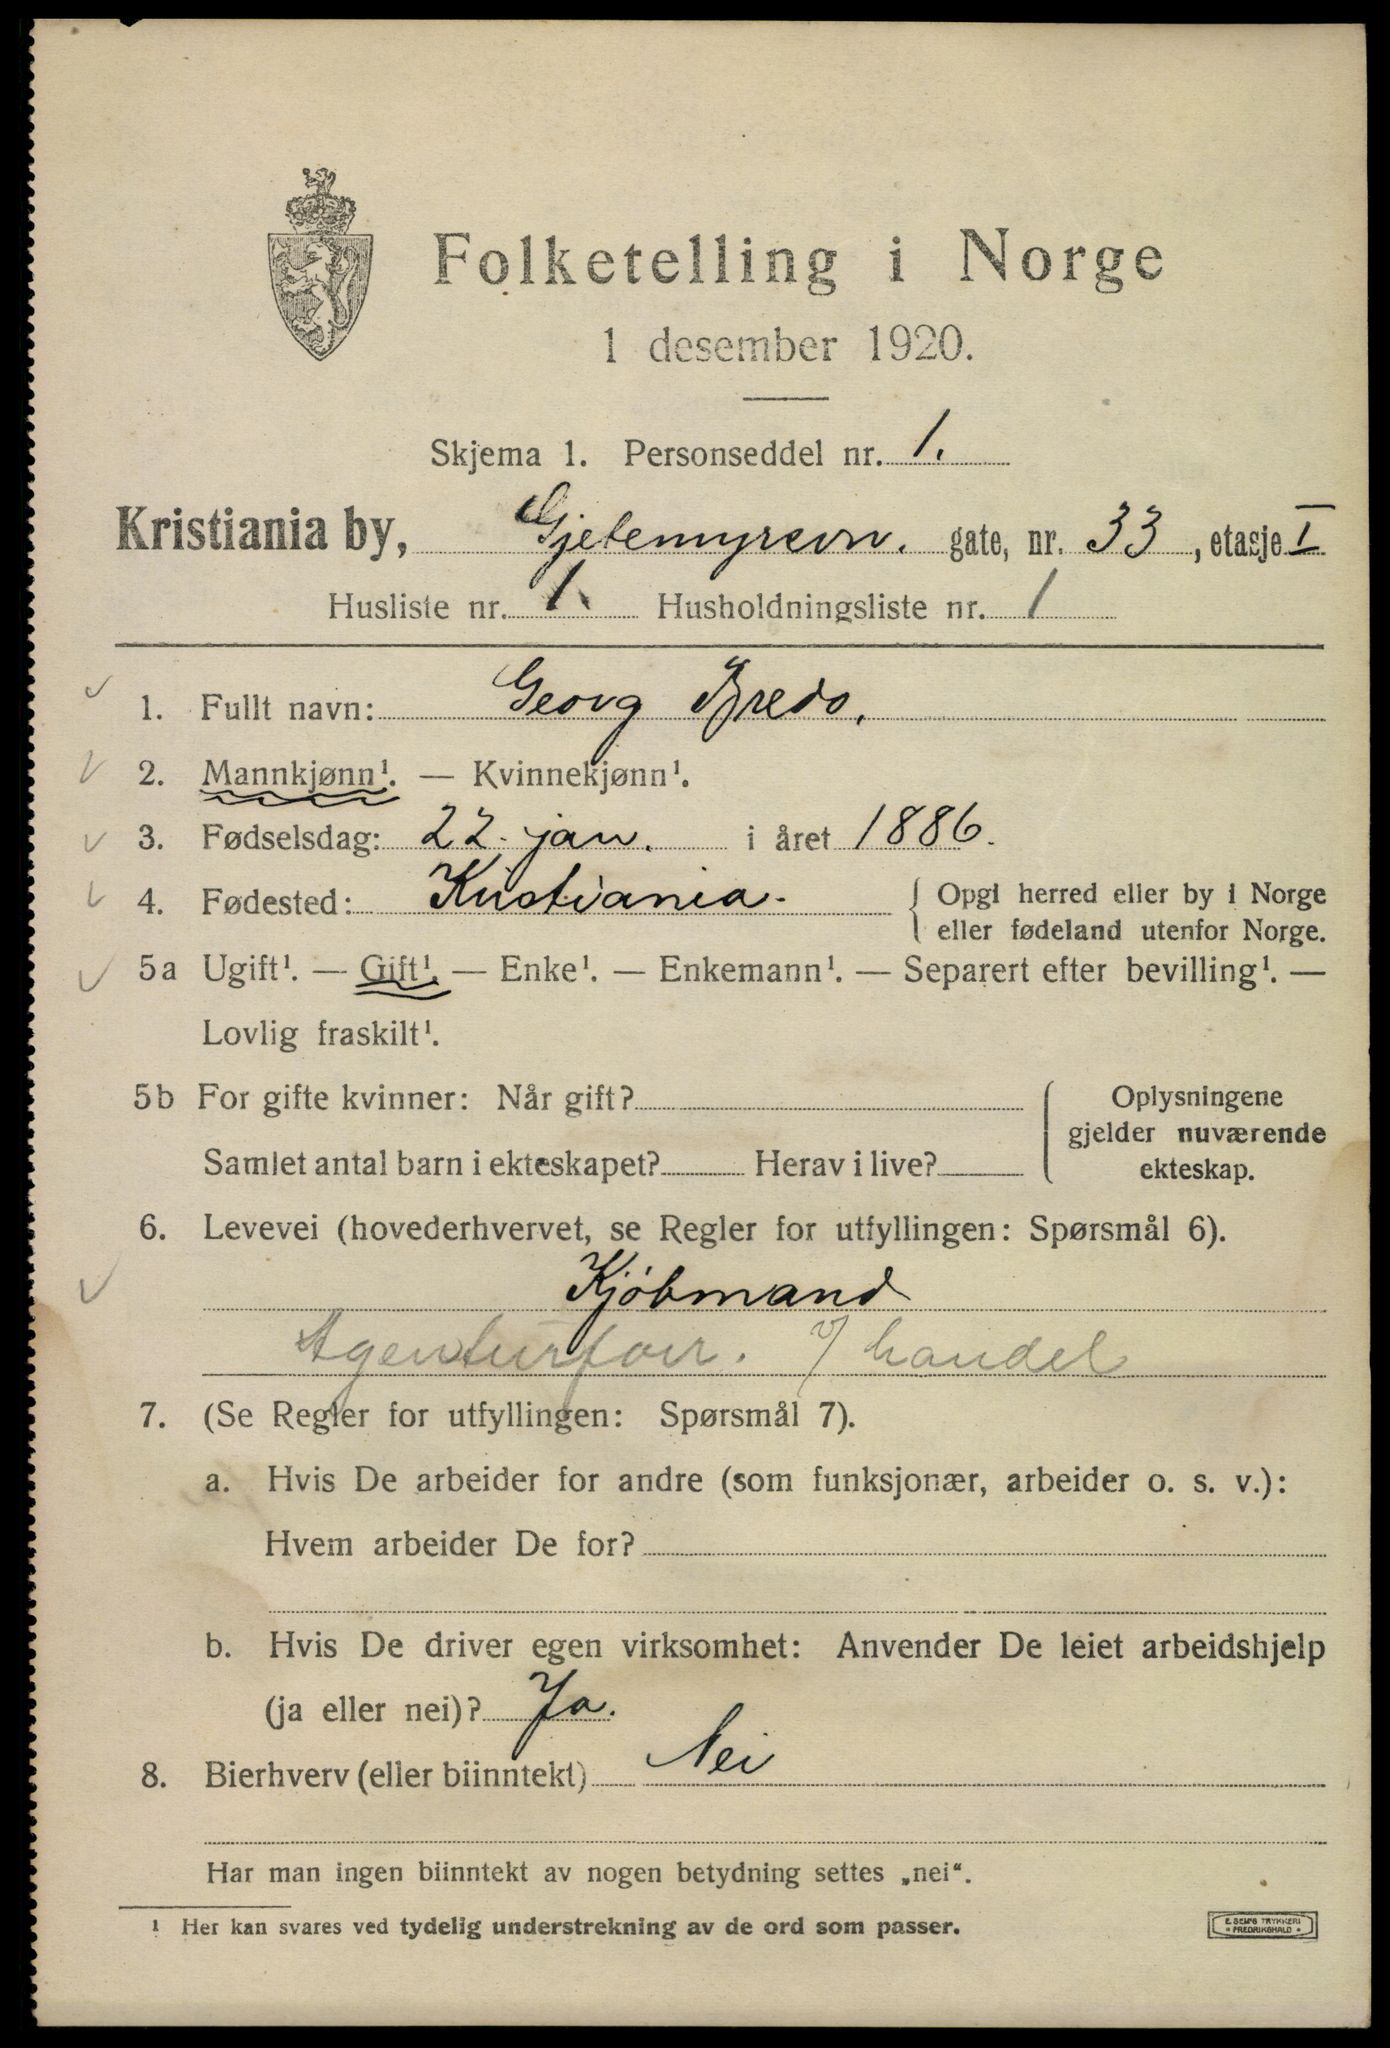 Folketelling i Norge
1 desember 1920.
Skjema 1. Personseddel nr. 1.
Kristiania by, Gjetemyrsvn. gate, nr. 33, etasje I
Husliste nr. 1. Husholdningsliste nr. 1
1. Fullt navn: Georg Bredo.
2. Mannkjønn¹. — Kvinnekjønn¹.
3. Fødselsdag: 22. jan. i året 1886.
4. Fødested: Kristiania. { Opgi herred eller by i Norge
eller fødeland utenfor Norge.
5a Ugift¹. — Gift¹. — Enke¹. — Enkemann¹. — Separert efter bevilling¹. —
Lovlig fraskilt¹.
5b For gifte kvinner: Når gift? { Oplysningene
gjelder nuværende
Samlet antal barn i ekteskapet? Herav i live? ekteskap.
6. Levevei (hovederhvervet, se Regler for utfyllingen: Spørsmål 6).
Kjöbmand
Agenturforr. v/ handel
7. (Se Regler for utfyllingen: Spørsmål 7).
a. Hvis De arbeider for andre (som funksjonær, arbeider o. s. v.):
Hvem arbeider De for?
b. Hvis De driver egen virksomhet: Anvender De leiet arbeidshjelp
(ja eller nei)? Ja.
8. Bierhverv (eller biinntekt) Nei
Har man ingen biinntekt av nogen betydning settes „nei“.
¹ Her kan svares ved tydelig understrekning av de ord som passer.
E. SEM'S TRYKKERI
FREDRIKSHALD